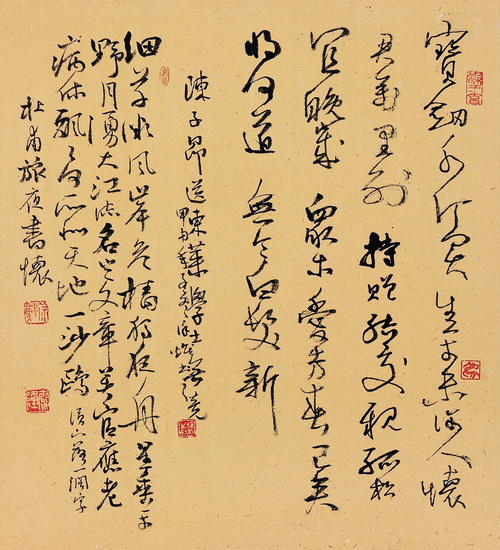 寶劍千金買生平未許人懷
君萬里別持贈結交親孤松
宜晚歲眾木愛芳春已矣
將何道無令白髮新
陳子昂送東萊學士無競
細草微風岸危檣獨夜舟星垂平
野月湧大江流名豈文章著官應老
病休飄飄何所似天地一沙鷗
杜甫旅夜書懷